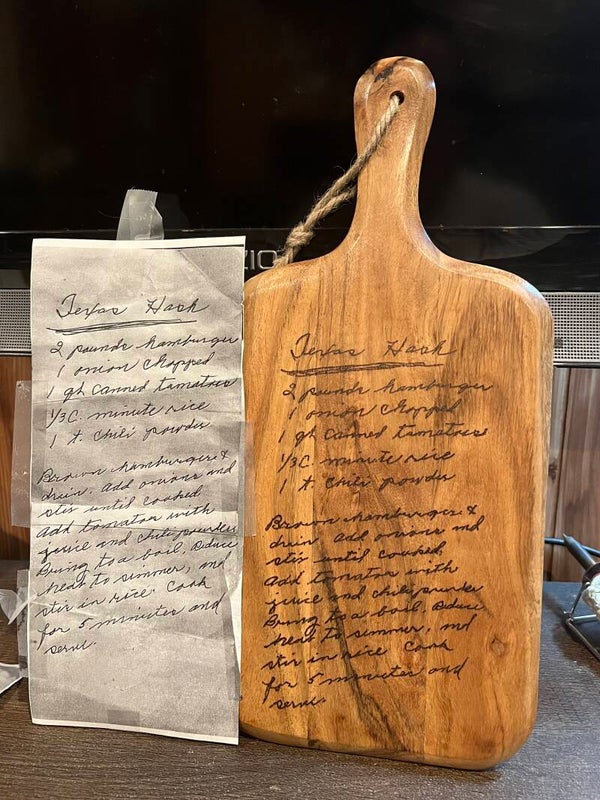 Texas Hash
2 pounds hamburger
1 onion chopped
1 qt canned tomatoes
1/3 C. minute rice
1 t. chili powder
Brown hamburger &
drain. Add onions and
stir until cooked
add tomatoes with
juice and chili powder
Bring to a boil. Reduce
heat to simmer, and
stir in rice. Cook
for 5 minutes and
serve.
ZIO
Texas Hash
2 pounds hamburger
1 onion chopped
1 qt canned tomatoes
1/3 C. minute rice
1 t. chili powder
Brown hamburger &
drain. Add onions and
stir until cooked.
add tomatoes with
juice and chili powder
Bring to a boil. Reduce
heat to simmer, and
stir in rice Cook
for 5 minutes and
serve.